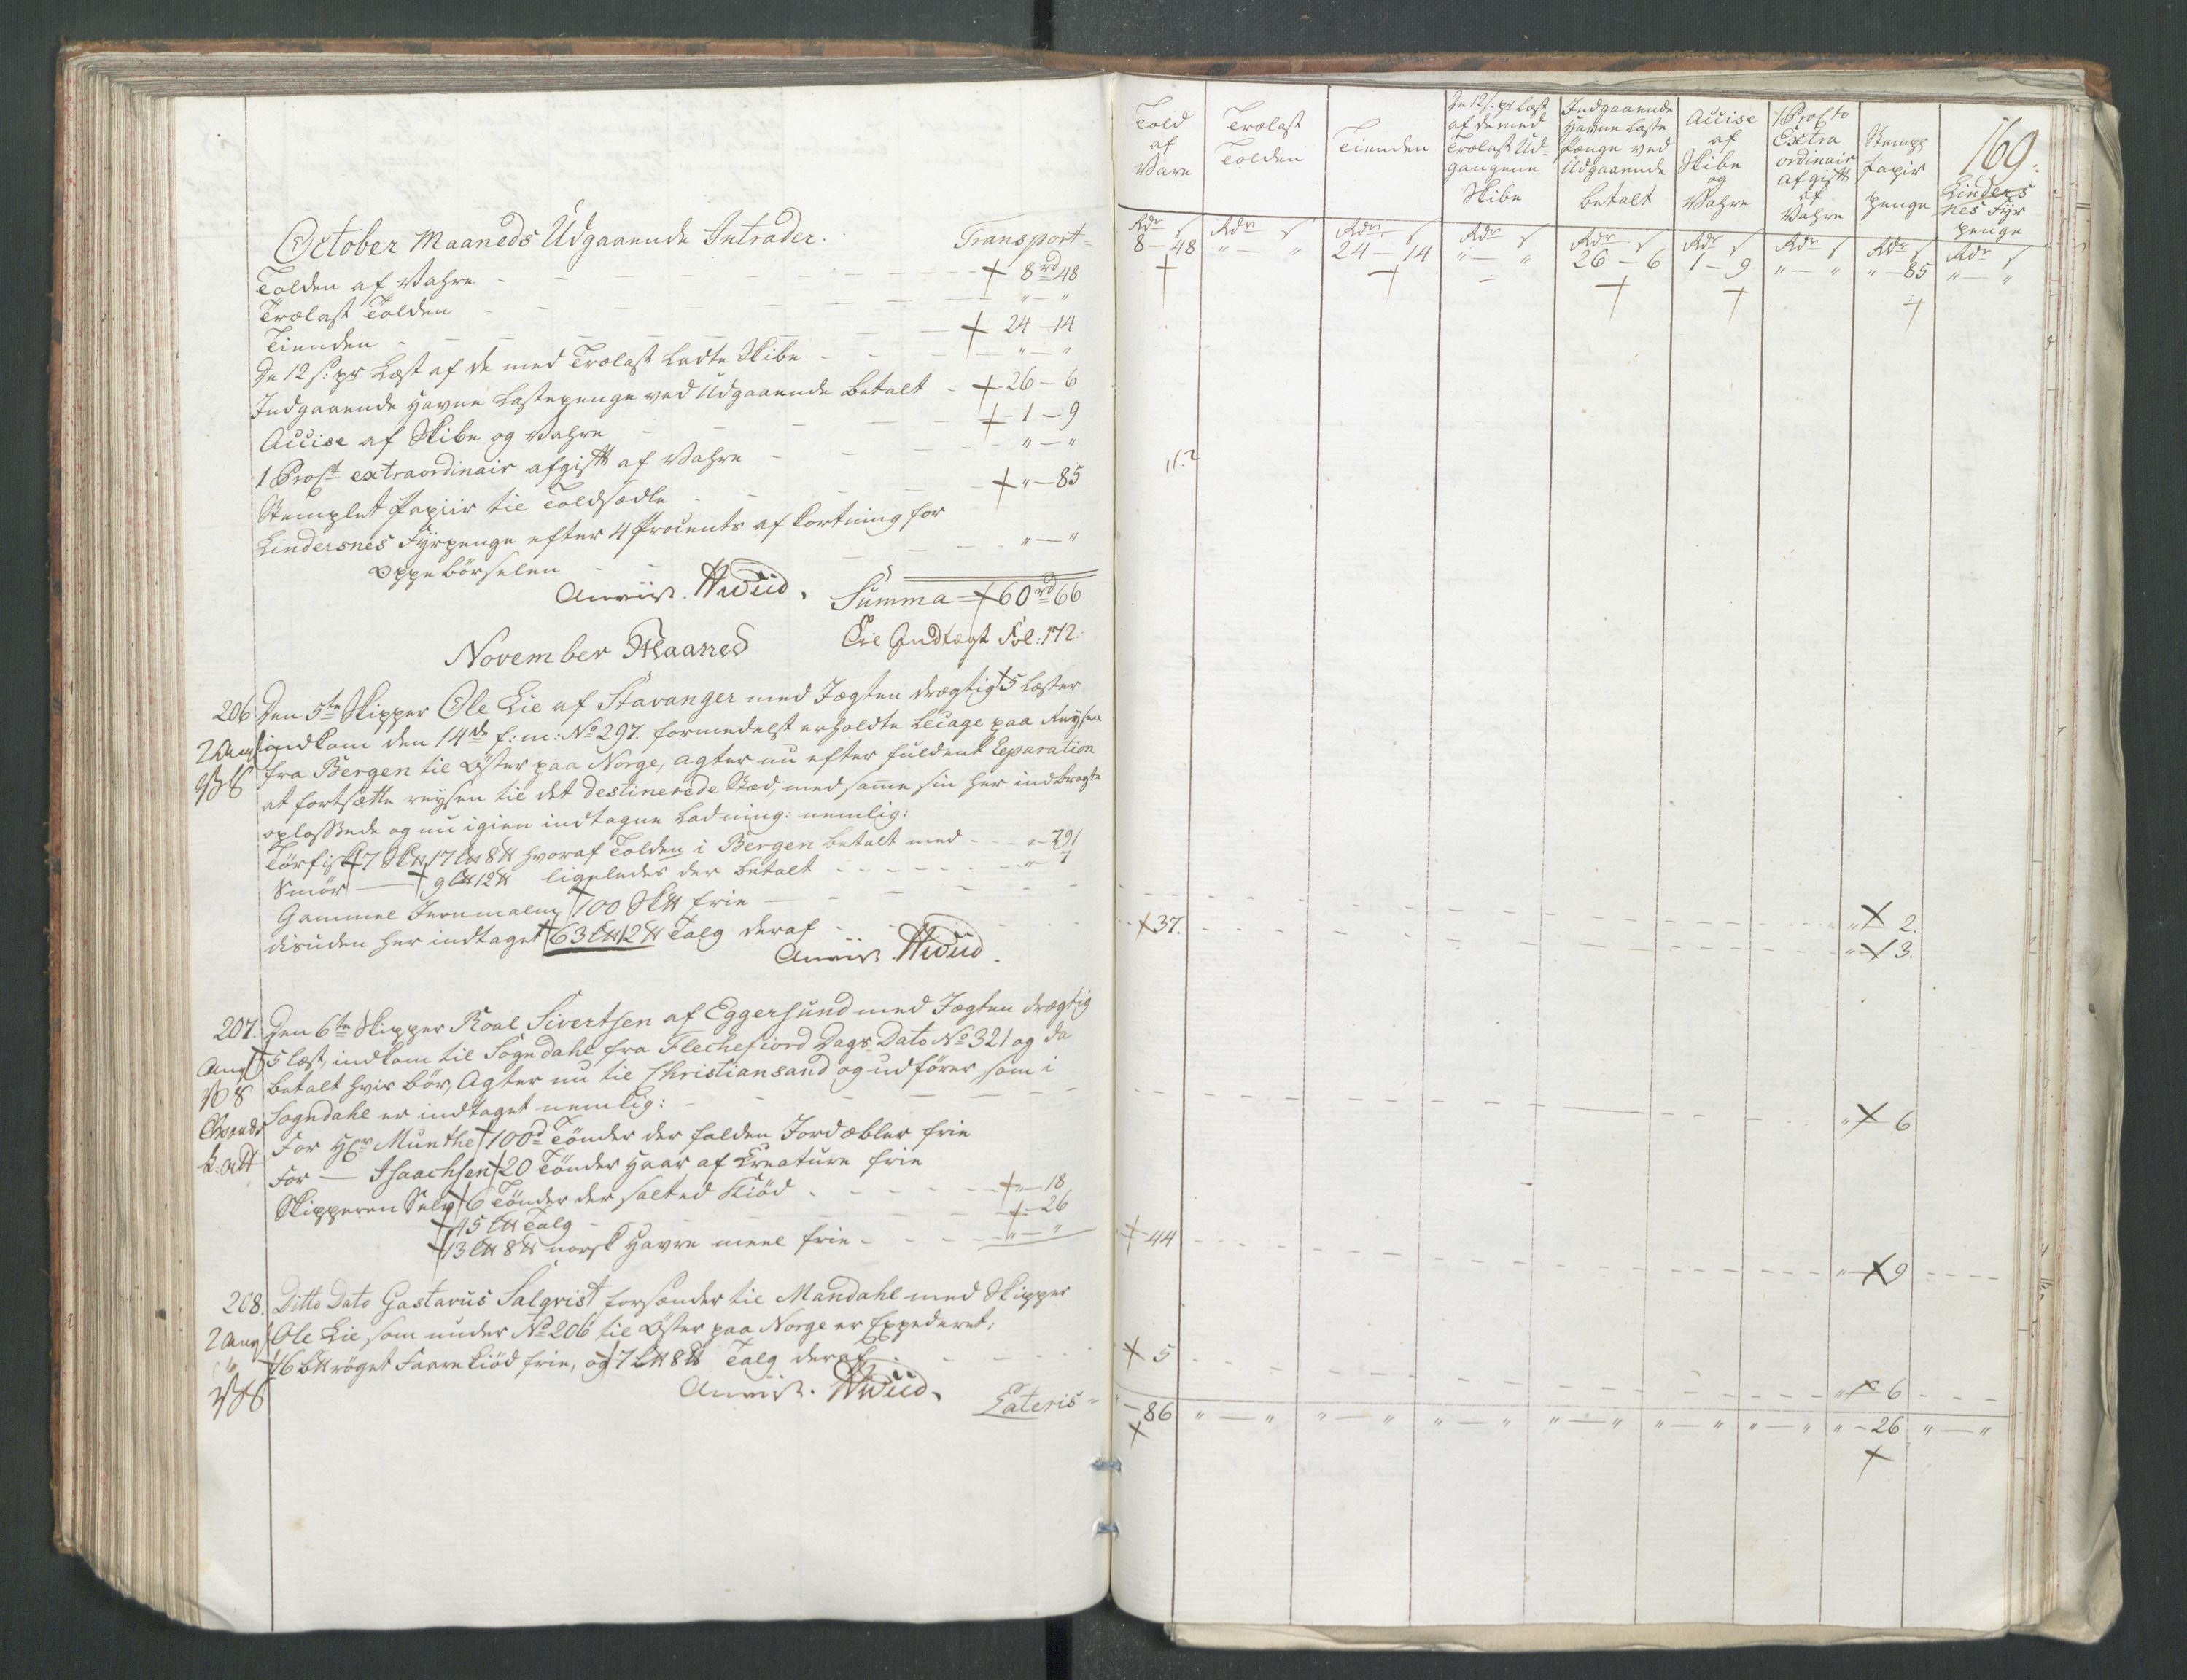 October Maaneds Udgaaende Intrader. Transport =
Tolden af Vahre - - - 8 rd 48
Trælast Tolden - - - " — "
Tienden - - - 24 — 14
De 12 s: pr Læst af de med Trælast Ladte Skibe - - - " — "
Indgaaende Havne Lastepenge ved Udgaaende betalt - 26 — 6
Accise af Skibe og Vahre - - - 1 — 9
1 Procto extraordinair afgift af Vahre - - - " — "
Stemplet Papiir til Toldsædle - - - " — 85
Lindersnes Fyrpenge efter 4 Procents afkortning for
Oppebörselen - - - " — "
Anviist. Summa = 60 rd 66
Til Indtægt Fol: 172.
November Maaned
206. Den 5te Skipper Ole Lie af Stavanger med Jægten drægtig 5 Læster
indkom den 14de f: m: No 297. formedelst erholdte Lecage paa Reysen
fra Bergen til Öster paa Norge, agter nu efter fuldent Reparation
at fortsætte reysen til det destinerede Stæd, med samme sin her indbragte
oplossede og nu igien indtagne Ladning: nemlig:
Törfisk 7 Sk℔ 17 L℔ 8 ℔ hvoraf Tolden i Bergen betalt med - - 291
Smör — 9 L℔ 12 ℔ ligeledes der betalt - - - " 7
Gammel Jernmalm 100 Sk℔ frie - - - " 2.
desuden her indtaget 63 L℔ 12 ℔ Talg deraf - - - 37. " 3.
Anviist.
207. Den 6te Skipper Roal Sivertsen af Eggersund med Jægten drægtig
5 Læst, indkom til Sogndahl fra Flechefiord Dags Dato No 321 og da
betalt hvis bör, Agter nu til Christiansand og udförer som i
Sogndahl er indtaget nemlig: - - - " 6
For Hr Munthe 100d Tönder der falden Jordæbler frie
For — Isaachsen 20 Tönder Haar af Creature frie
Skipperen Selv 6 Tönder der salted Kiöd - - - " — 18
45 L℔ Talg - - - 26
13 L℔ 8 ℔ norsk Havre meel frie - - - " — " 44 " 9
208. Ditto Dato Gastavus Salqvist forsænder til Mandahl med Skipper
Ole Lie som under No 206 til Öster paa Norge er Expederet;
16 L℔ röget Faare kiöd frie, og 7 L℔ 8 ℔ Talg deraf - - - 5 " 6
Anviist. Lateris = — 86 " — " " — " " — " " — " " — " " — " " — 26 " — "
169.
Told af Vare
Trælast Tolden
Tienden
De 12 s: pr Læst af de med Trælast Udgangene Skibe
Indgaaende Havne Laste Penge ved Udgaaende betalt
Accise af Skibe og Vahre
1 Procto Extra ordinair afgift af Vahre
Stempl Papir penge
Linders nes Fyr penge
Rdr s Rdr s Rdr s Rdr s Rdr s Rdr s Rdr s Rdr s Rdr s
8 — 48 " — " 24 — 14 " — " 26 — 6 1 — 9 " — " " — 85 " — "